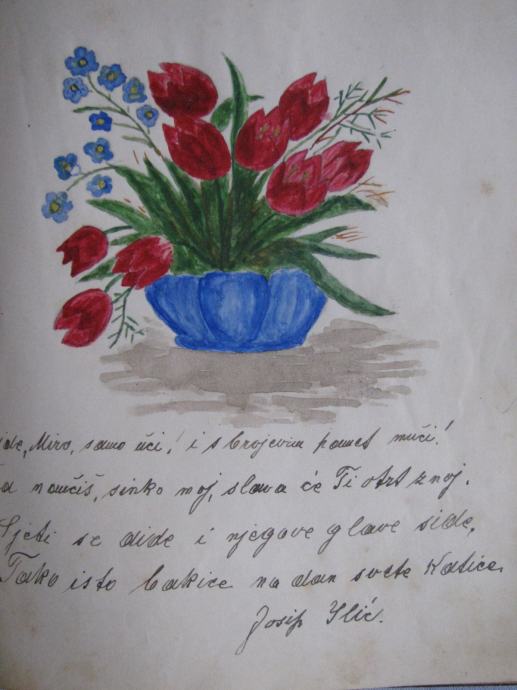 Miro, samo uči! i s brojevim pamet muči!
naučiš, sinko moj, slava će Ti otrt znoj.
Sjeti se dide i njegove glave side,
Tako isto bakice na dan svete Katice.
Josip Ilić.